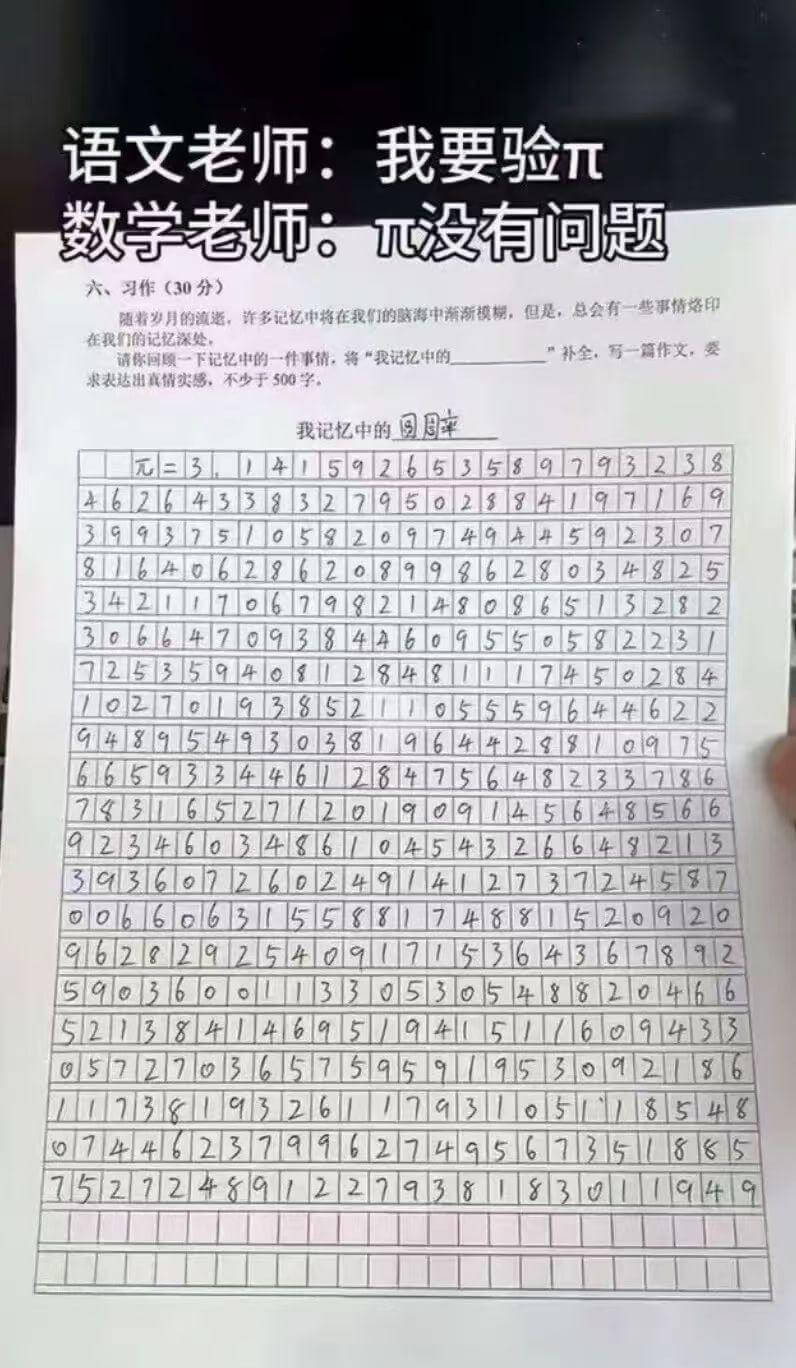 语文老师：我要验π
数学老师：π没有问题
六、习作（30 分）
随着岁月的流逝，许多记忆中将在我们的脑海中渐渐模糊，但是，总会有一些事情烙印
在我们的记忆深处。
请你回顾一下记忆中的一件事情，将“我记忆中的____________”补全，写一篇作文，要
求表达出真情实感，不少于 500 字。
我记忆中的 圆周率
π=3.141592653589793238
462643383279502884197169
399375105820974944592307
816406286208998628034825
342117067982148086513282
306647093844609550582231
725359408128481117450284
102701938521105559644622
948954930381964428810975
665933446128475648233786
783165271201909145648566
923460348610454326648213
393607260249141273724587
006606315588174881520920
962829254091715364367892
590360011330530548820466
521384146951941511609433
057270365759591953092186
117381932611793105118548
074462379962749567351885
752724891227938183011949